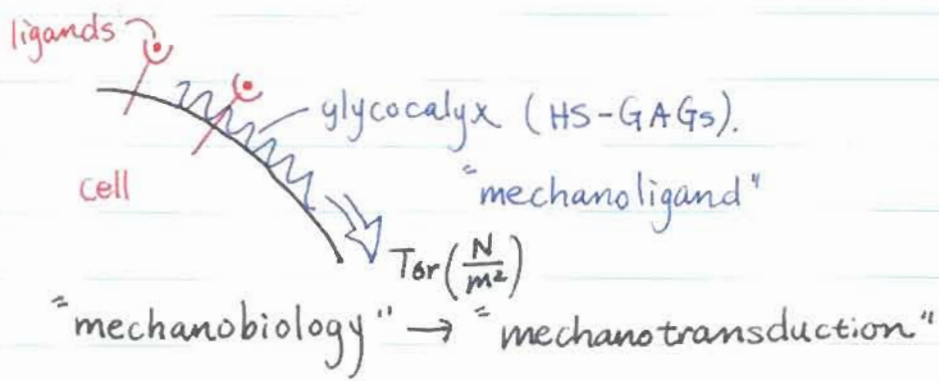 ligands
glycocalyx (HS-GAGs).
cell
"mechanoligand"
Tθr (N/m²)
"mechanobiology" → "mechanotransduction"